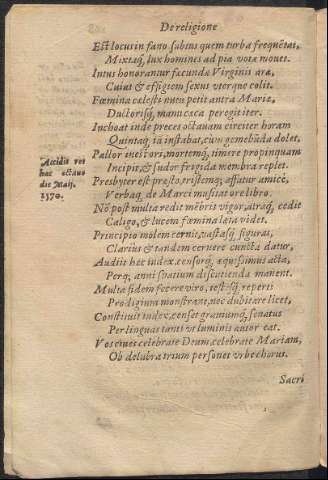 De religione
Est locus in fano subtus quem turba frequētat,
Mixtaq́, lux homines ad pia vota mouet.
Intus honorantur facundæ Virginis aræ,
Cuiat & effigiem sexus vterque colit.
Fœmina cælestē nuen petit antra Mariæ,
Ductorisq́, manu cæca peregit iter.
Inchoat inde preces octauam circiter horam
Quintaq́, iā instabat, cùm gemebūda dolet,
Pallor inest ori, mortemq́, timere propinquam
Incipit, & sudor frigida membra replet.
Accidit rei
hac octauo
die Maij.
1570.
Presbyter est presto, tristemq́; affatur amicè,
Verbaq́, de Marci mussitat ore libro.
Nō post multa redit mēbris vigor, atraq́, cedit
Caligo, & lucem fæmina læta videt.
Principio molem cernit, vastasq́, figuras,
Clarius & tandem cernere cuncta datur,
Audiit hæc iudex, censorq́, æquissimus acta,
Perq́, anni spatium discutienda manent.
Multa fidem fecere viro, testesq́, reperti
Prodigium monstrant, nec dubitare licet,
Constituit iudex, censet grauiumq́, senatus
Per linguas tanti vt luminis autor eat.
Vos ciues celebrate Deum, celebrate Mariam,
Ob delubra trium personet vrbe chorus.
Sacri